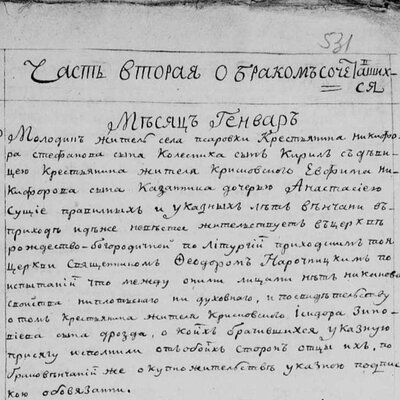 531
Часть вторая о бракомъ сочетавших-
ся
Мѣсяцъ Генваръ
Молодикъ житель села псаровки крестьянина никифо-
ра стефанова сына Колесника сынъ Кирилъ съ дѣви-
цею крестьянина жителя Крисовского Евфима ни-
кифорова сына дочерью Анастасiею
Сущiе правилныхъ и указныхъ лѣтъ вѣнчани въ
приходѣ идѣже невѣста жителствуетъ въ церкви
рождество-богородичной по лiтургiи приходскимъ тоя
церкви Священикомъ Феодоромъ Нарочницкимъ по
испытанiи что между оними лицами нѣтъ никакова
свойства ни плотскаго ни духовного, и по свидѣтелству
о томъ крестьянина жителя Крисовского iсидора Зино-
вiева сына дрозда, о коихъ бравшихся указную
присягу исполнили отъ обойхъ сторон отцы ихъ, по
браковѣнчанiи же о купножителствѣ указною подпис-
кою обовязани.